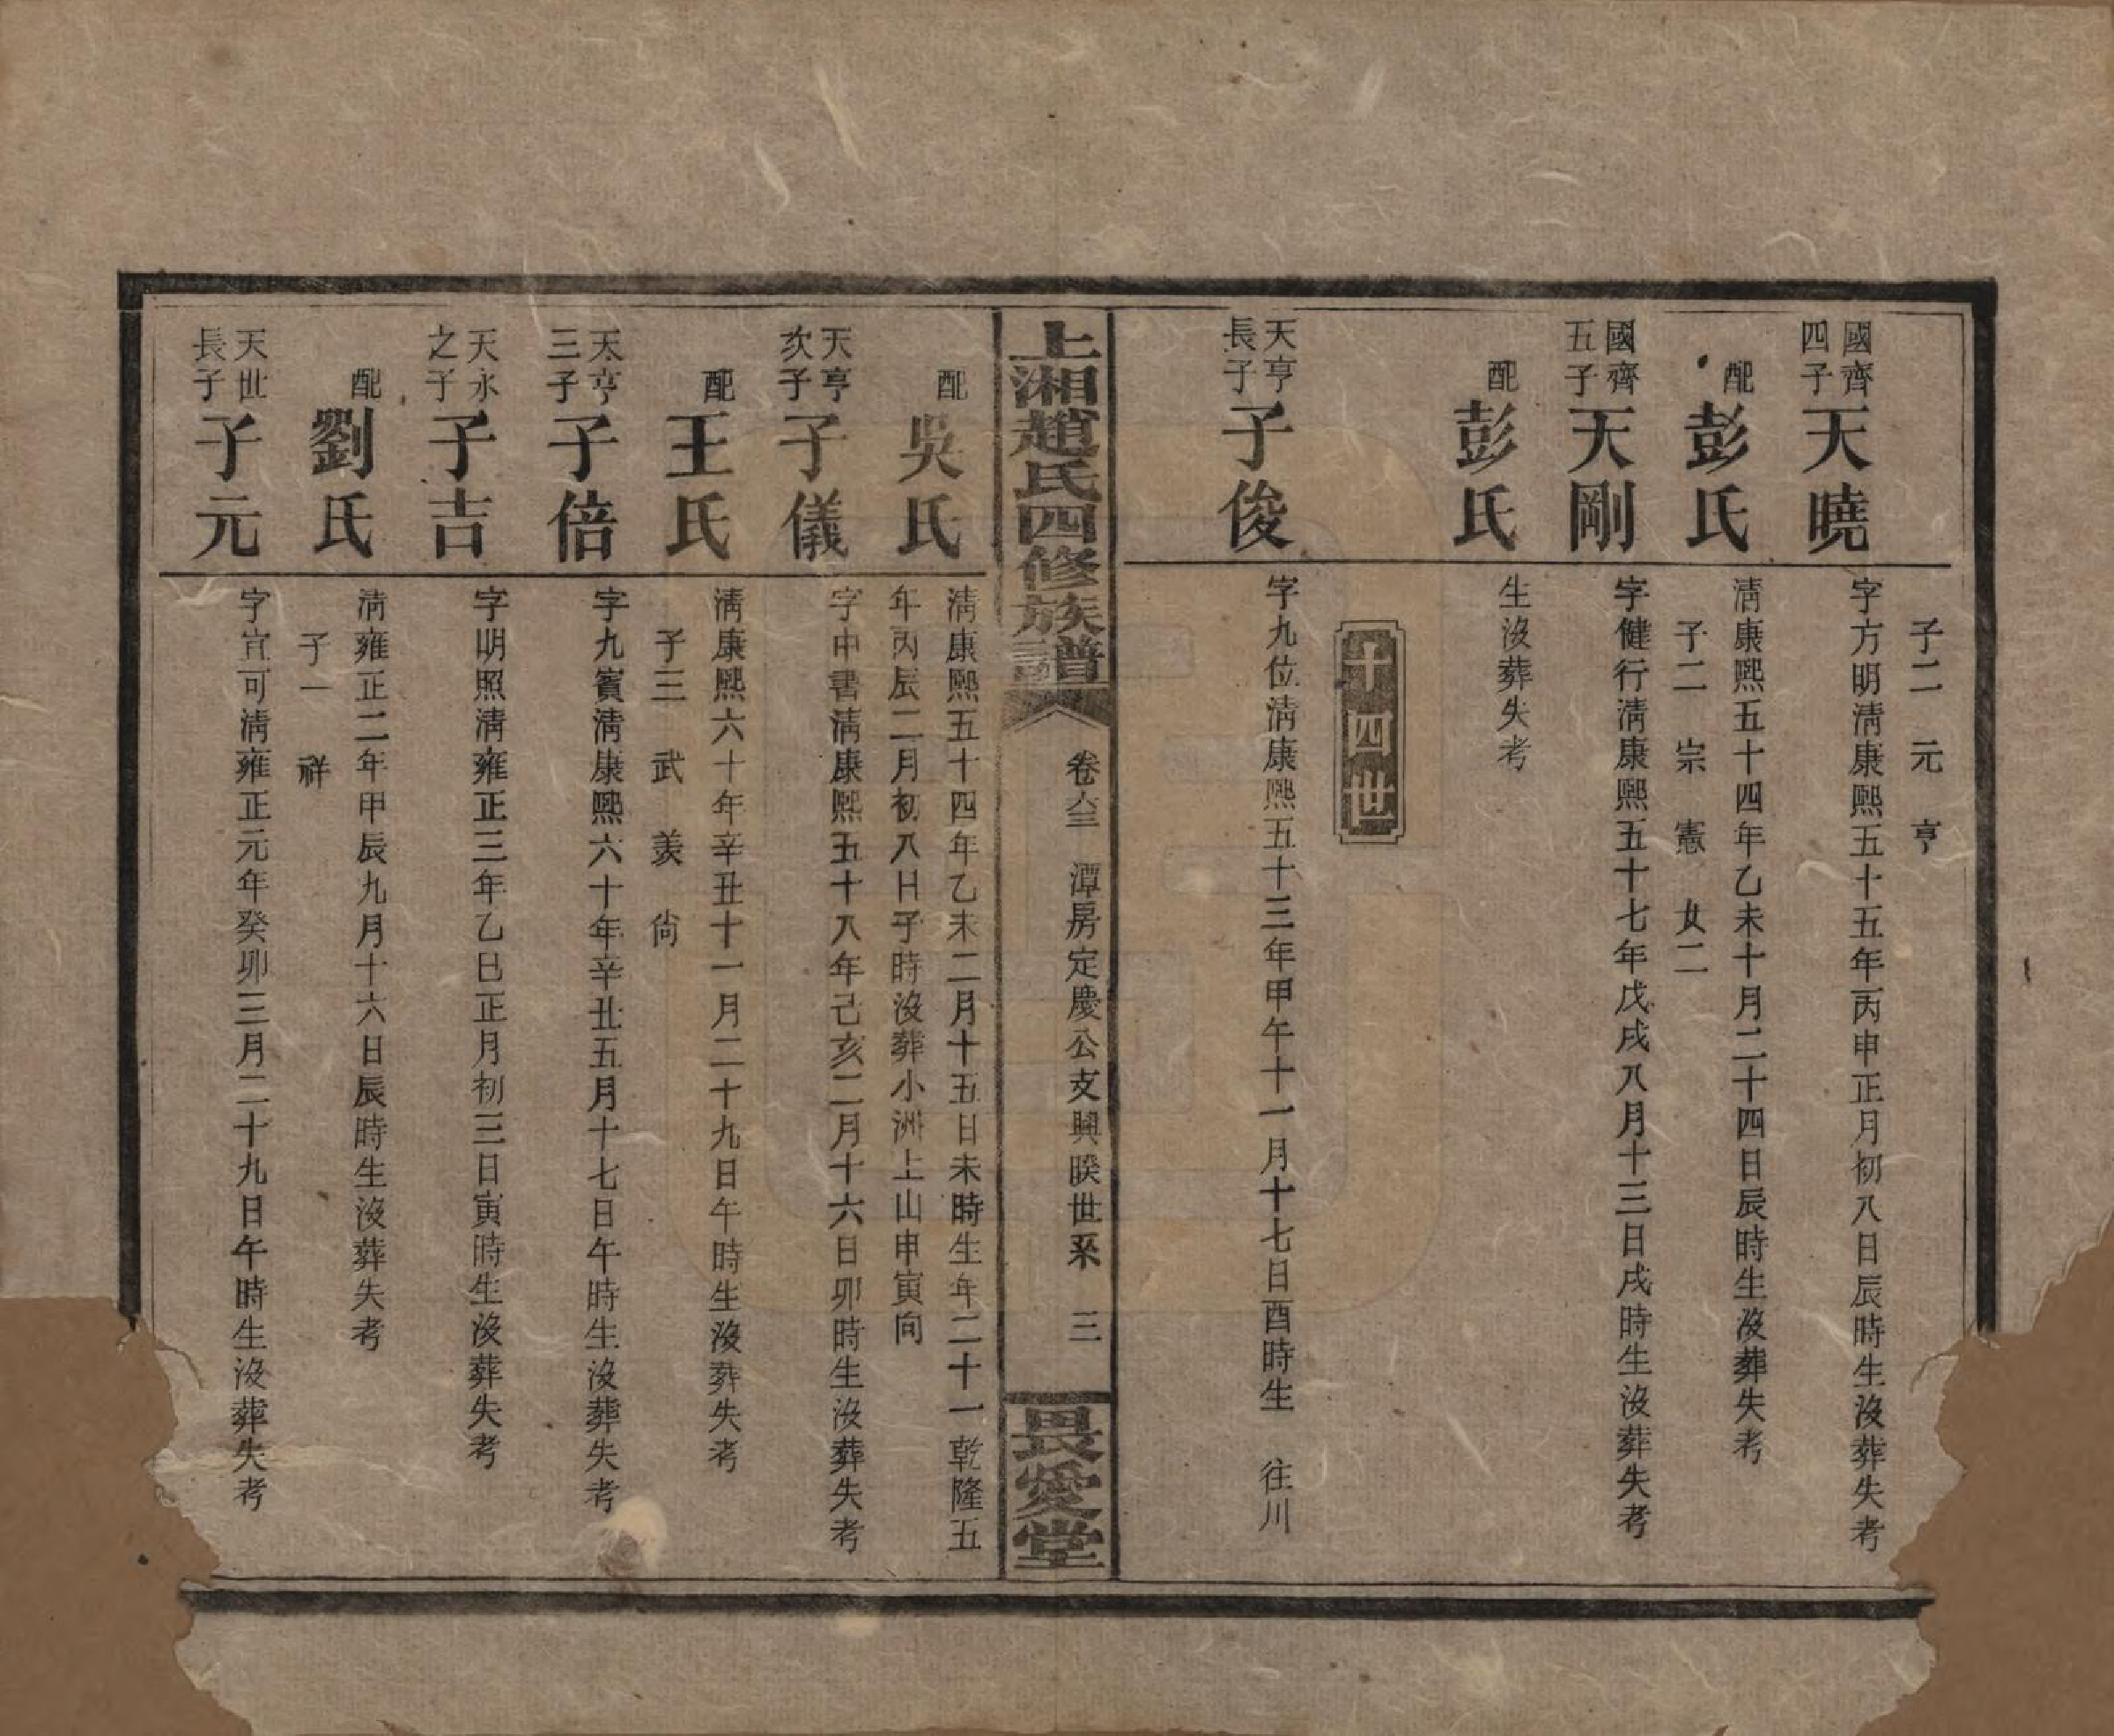 子二 元 亨
國齊四子 天曉 字方明淸康熙五十五年丙申正月初八日辰時生沒葬失考
配 彭氏 淸康熙五十四年乙未十月二十四日辰時生沒葬失考
子二 宗 憲 女二
國齊五子 天剛 字健行淸康熙五十七年戊戌八月十三日戌時生沒葬失考
配 彭氏 生沒葬失考
十四世
天亨長子 子俊 字九位淸康熙五十三年甲午十一月十七日酉時生 往川
上湘趙氏四修族譜 卷六三 潭房定慶公支興睽世系 三 畏愛堂
配 吳氏 淸康熙五十四年乙未二月十五日未時生年二十一乾隆五
年丙辰二月初八日子時沒葬小洲上山申寅向
天亨次子 子儀 字中書淸康熙五十八年己亥二月十六日卯時生沒葬失考
配 王氏 淸康熙六十年辛丑十一月二十九日午時生沒葬失考
子三 武 羨 尙
天亨三子 子倍 字九賓淸康熙六十年辛丑五月十七日午時生沒葬失考
天永之子 子吉 字明照淸雍正三年乙巳正月初三日寅時生沒葬失考
配 劉氏 淸雍正二年甲辰九月十六日辰時生沒葬失考
子一 祥
天世長子 子元 字宜可淸雍正元年癸卯三月二十九日午時生沒葬失考